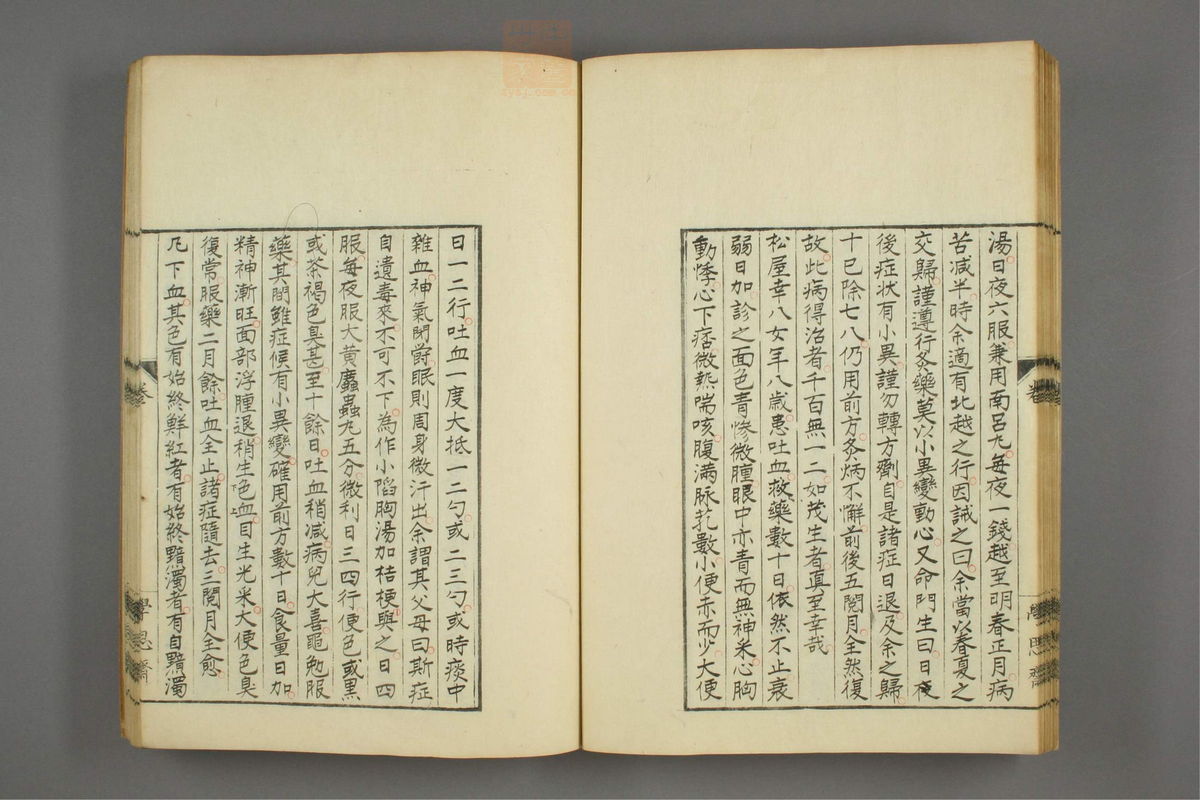 湯日夜六服兼用南呂丸每夜一錢越至明春正月病
苦減半時余適有北越之行因誡之曰余當以春夏之
交歸謹遵行灸藥莫以小異變動心又命門生曰日夜
後症狀有小異謹勿轉方劑自是諸症日退及余之歸
十已除七八仍用前方灸炳不懈前後五閱月全然復
故此病得治者千百無一二如茂生者真至幸哉
松屋幸八女年八歲患吐血救藥數十日依然不止衰
弱日加診之面色青慘微腫眼中亦青而無神采心胸
動悸心下痞微熱喘咳腹滿脉芤數小便赤而少大便
日一二行吐血一度大抵一二勺或二三勺或時痰中
雜血神氣閉欝眠則周身微汗出余謂其父母曰斯症
自遺毒來不可不下為作小陷胸湯加桔梗與之日四
服每夜服大黄䗪蟲丸五分微利日三四行便色或黒
或茶褐色臭甚至十餘日吐血稍減病兒大喜黽勉服
藥其間雖症候有小異變確用前方數十日食量日加
精神漸旺面部浮腫退稍生色血目生光采大便色臭
復常服藥二月餘吐血全止諸症隨去三閱月全愈
凡下血其色有始終鮮紅者有始終黯濁者有自黯濁
卷
學思齋